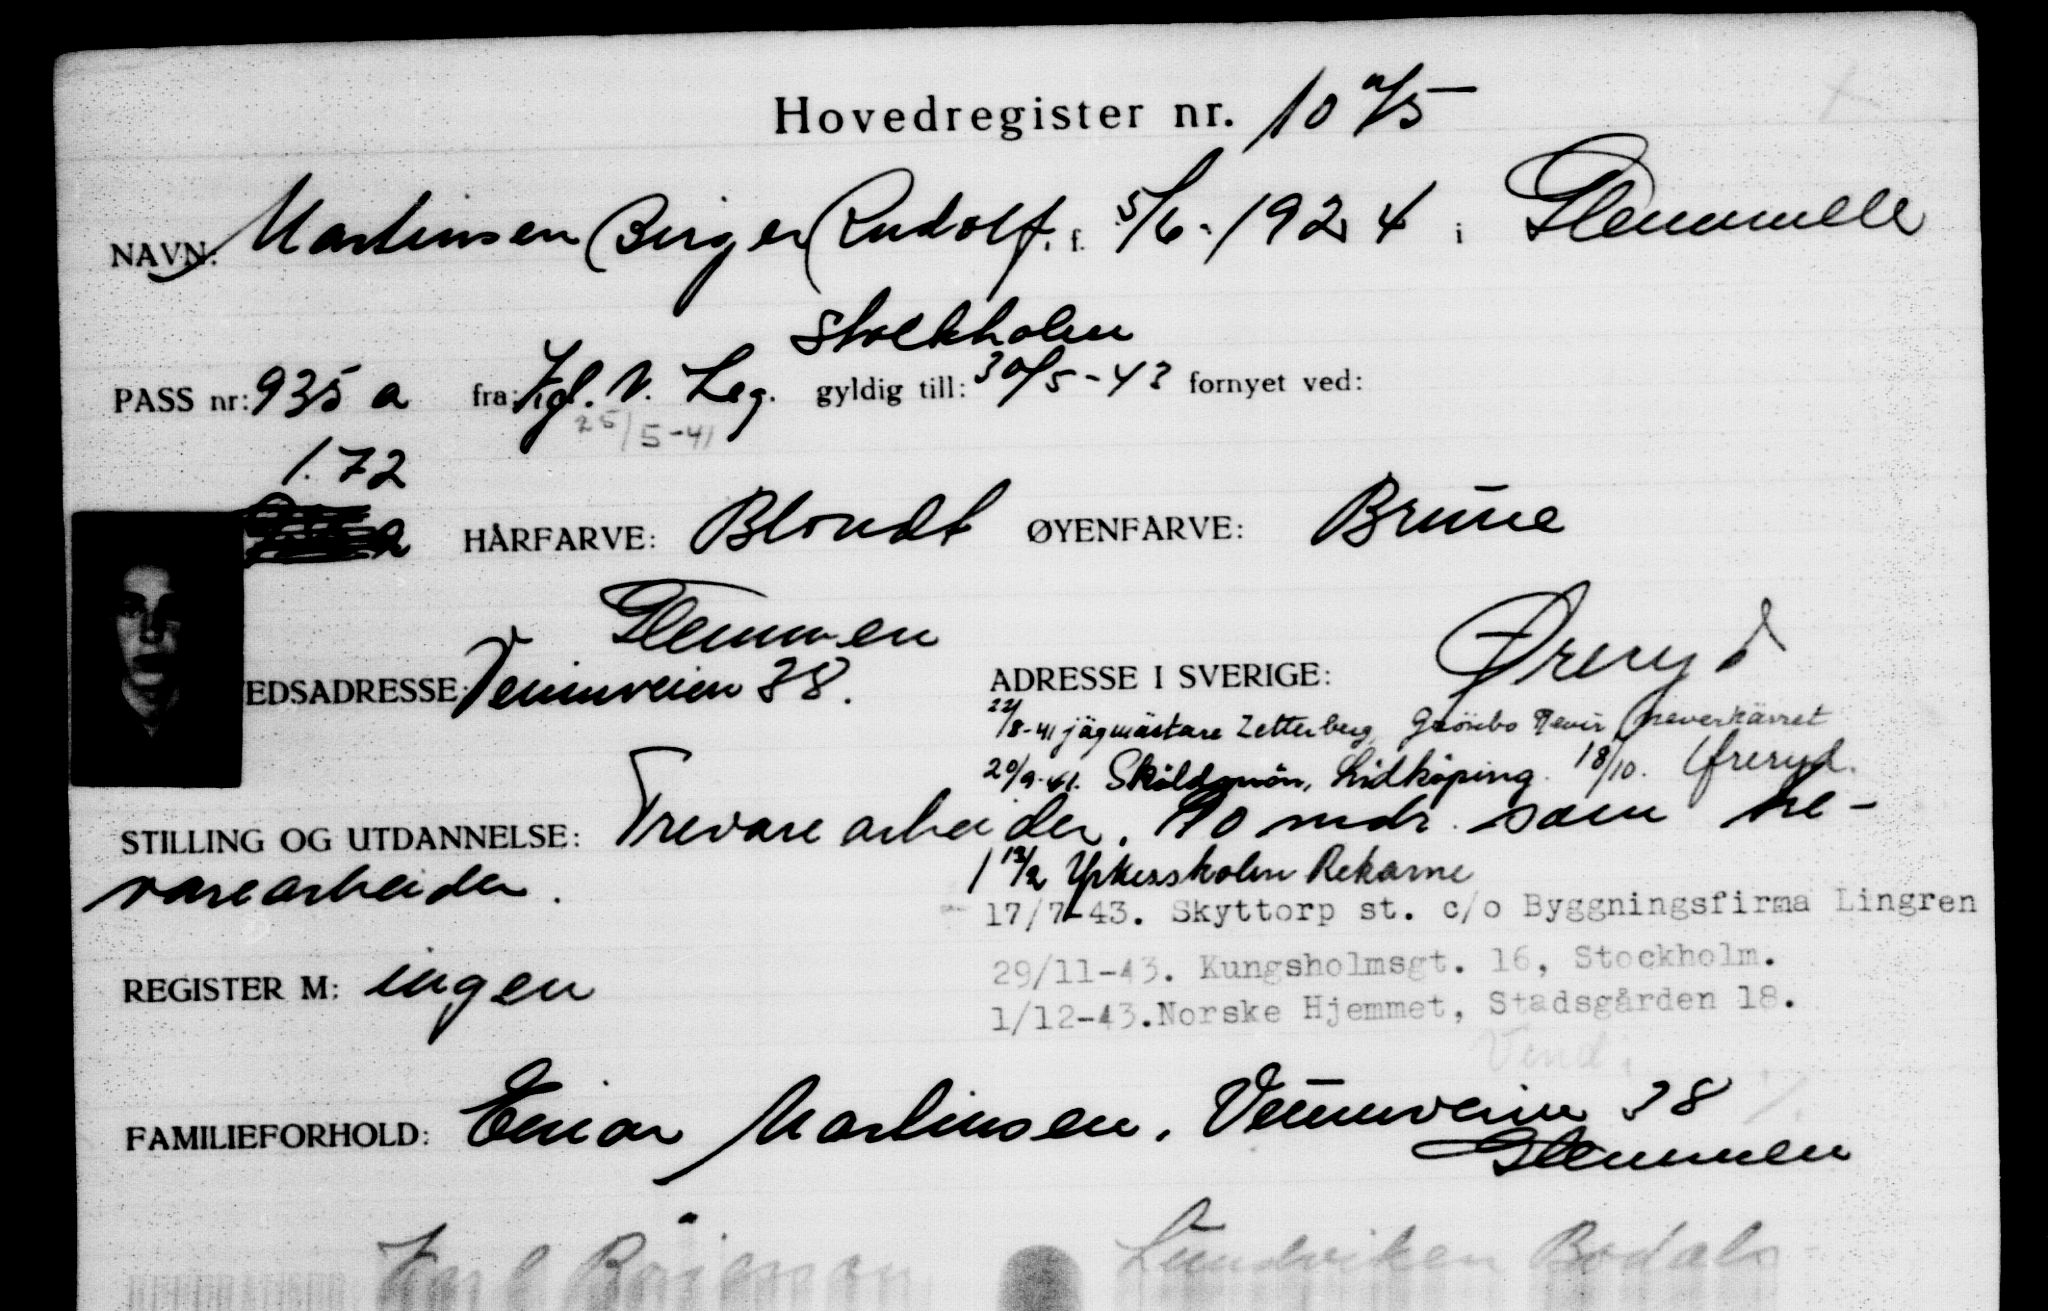 Hovedregister nr. 10 a/5
NAVN: Martinsen Birger Rudolf. f. 5/6-1924 i Glemmen
Stockholm
PASS nr: 935 a fra: Kgl. N. Leg. gyldig till: 30/5-43 fornyet ved:
25/5-41
1.72
HÅRFARVE: Blondt ØYENFARVE: Brune
Glemmen
EDSADRESSE: Veumveien 38. ADRESSE I SVERIGE: Øreryd
22/8-41 jägmästare Zetterberg, Grönbo Revir
20/9-41. Sköldmön, Lidköping. 18/10. Øreryd.
STILLING OG UTDANNELSE: Trevarearbeider. 10 mdr. som tre-
varearbeider.
1 12/2 Yrkesskolen Rekarne
17/7-43. Skyttorp st. c/o Byggningsfirma Lingren
29/11-43. Kungsholmsgt. 16, Stockholm.
REGISTER M: ingen
1/12-43. Norske Hjemmet, Stadsgården 18.
Vend.
FAMILIEFORHOLD: Einar Martinsen, Veumveien 38
Glemmen
Karl Bodals